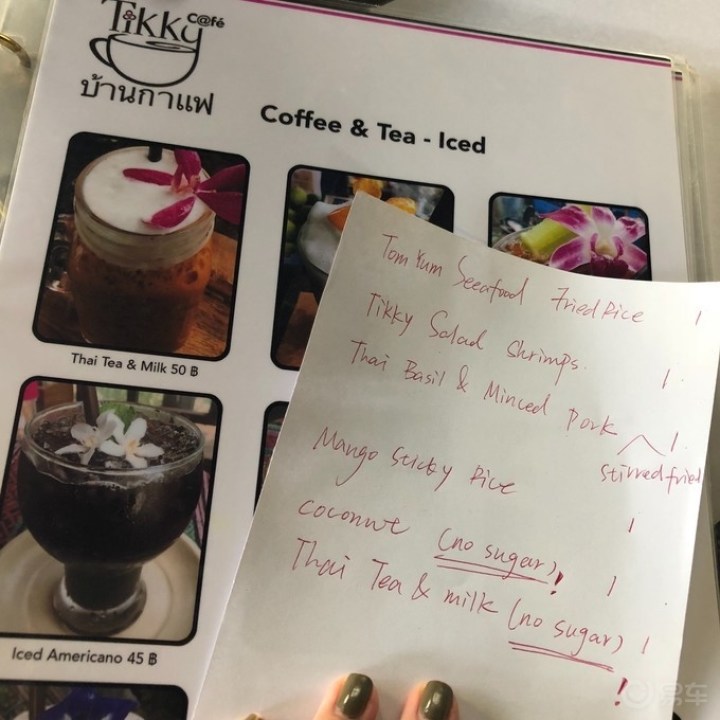 Tikky C@fé
บ้านกาแฟ
Coffee & Tea - Iced
Thai Tea & Milk 50 ฿
Iced Americano 45 ฿
Tom Yum Seeafood Fried Rice 1
Tikky Salad Shrimps. 1.
Thai Basil & Minced Pork 1.
Stirred fried
Mango Sticky Rice 1
Coconut (no sugar)! 1
Thai Tea & milk (no sugar) 1
!
易车